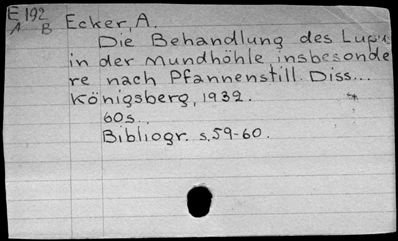 E 192
A B
Ecker, A.
Die Behandlung des Lupus
in der Mundhöhle insbesonde
re nach Pfannenstill. Diss...
Königsberg, 1932.
60s..
Bibliogr. s.59-60.